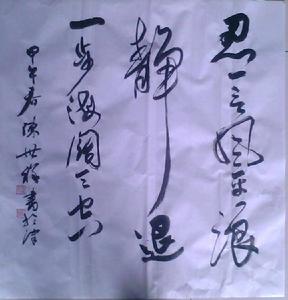 忍一言风平浪
静退
一步海阔天空
甲午春陈世 书於津